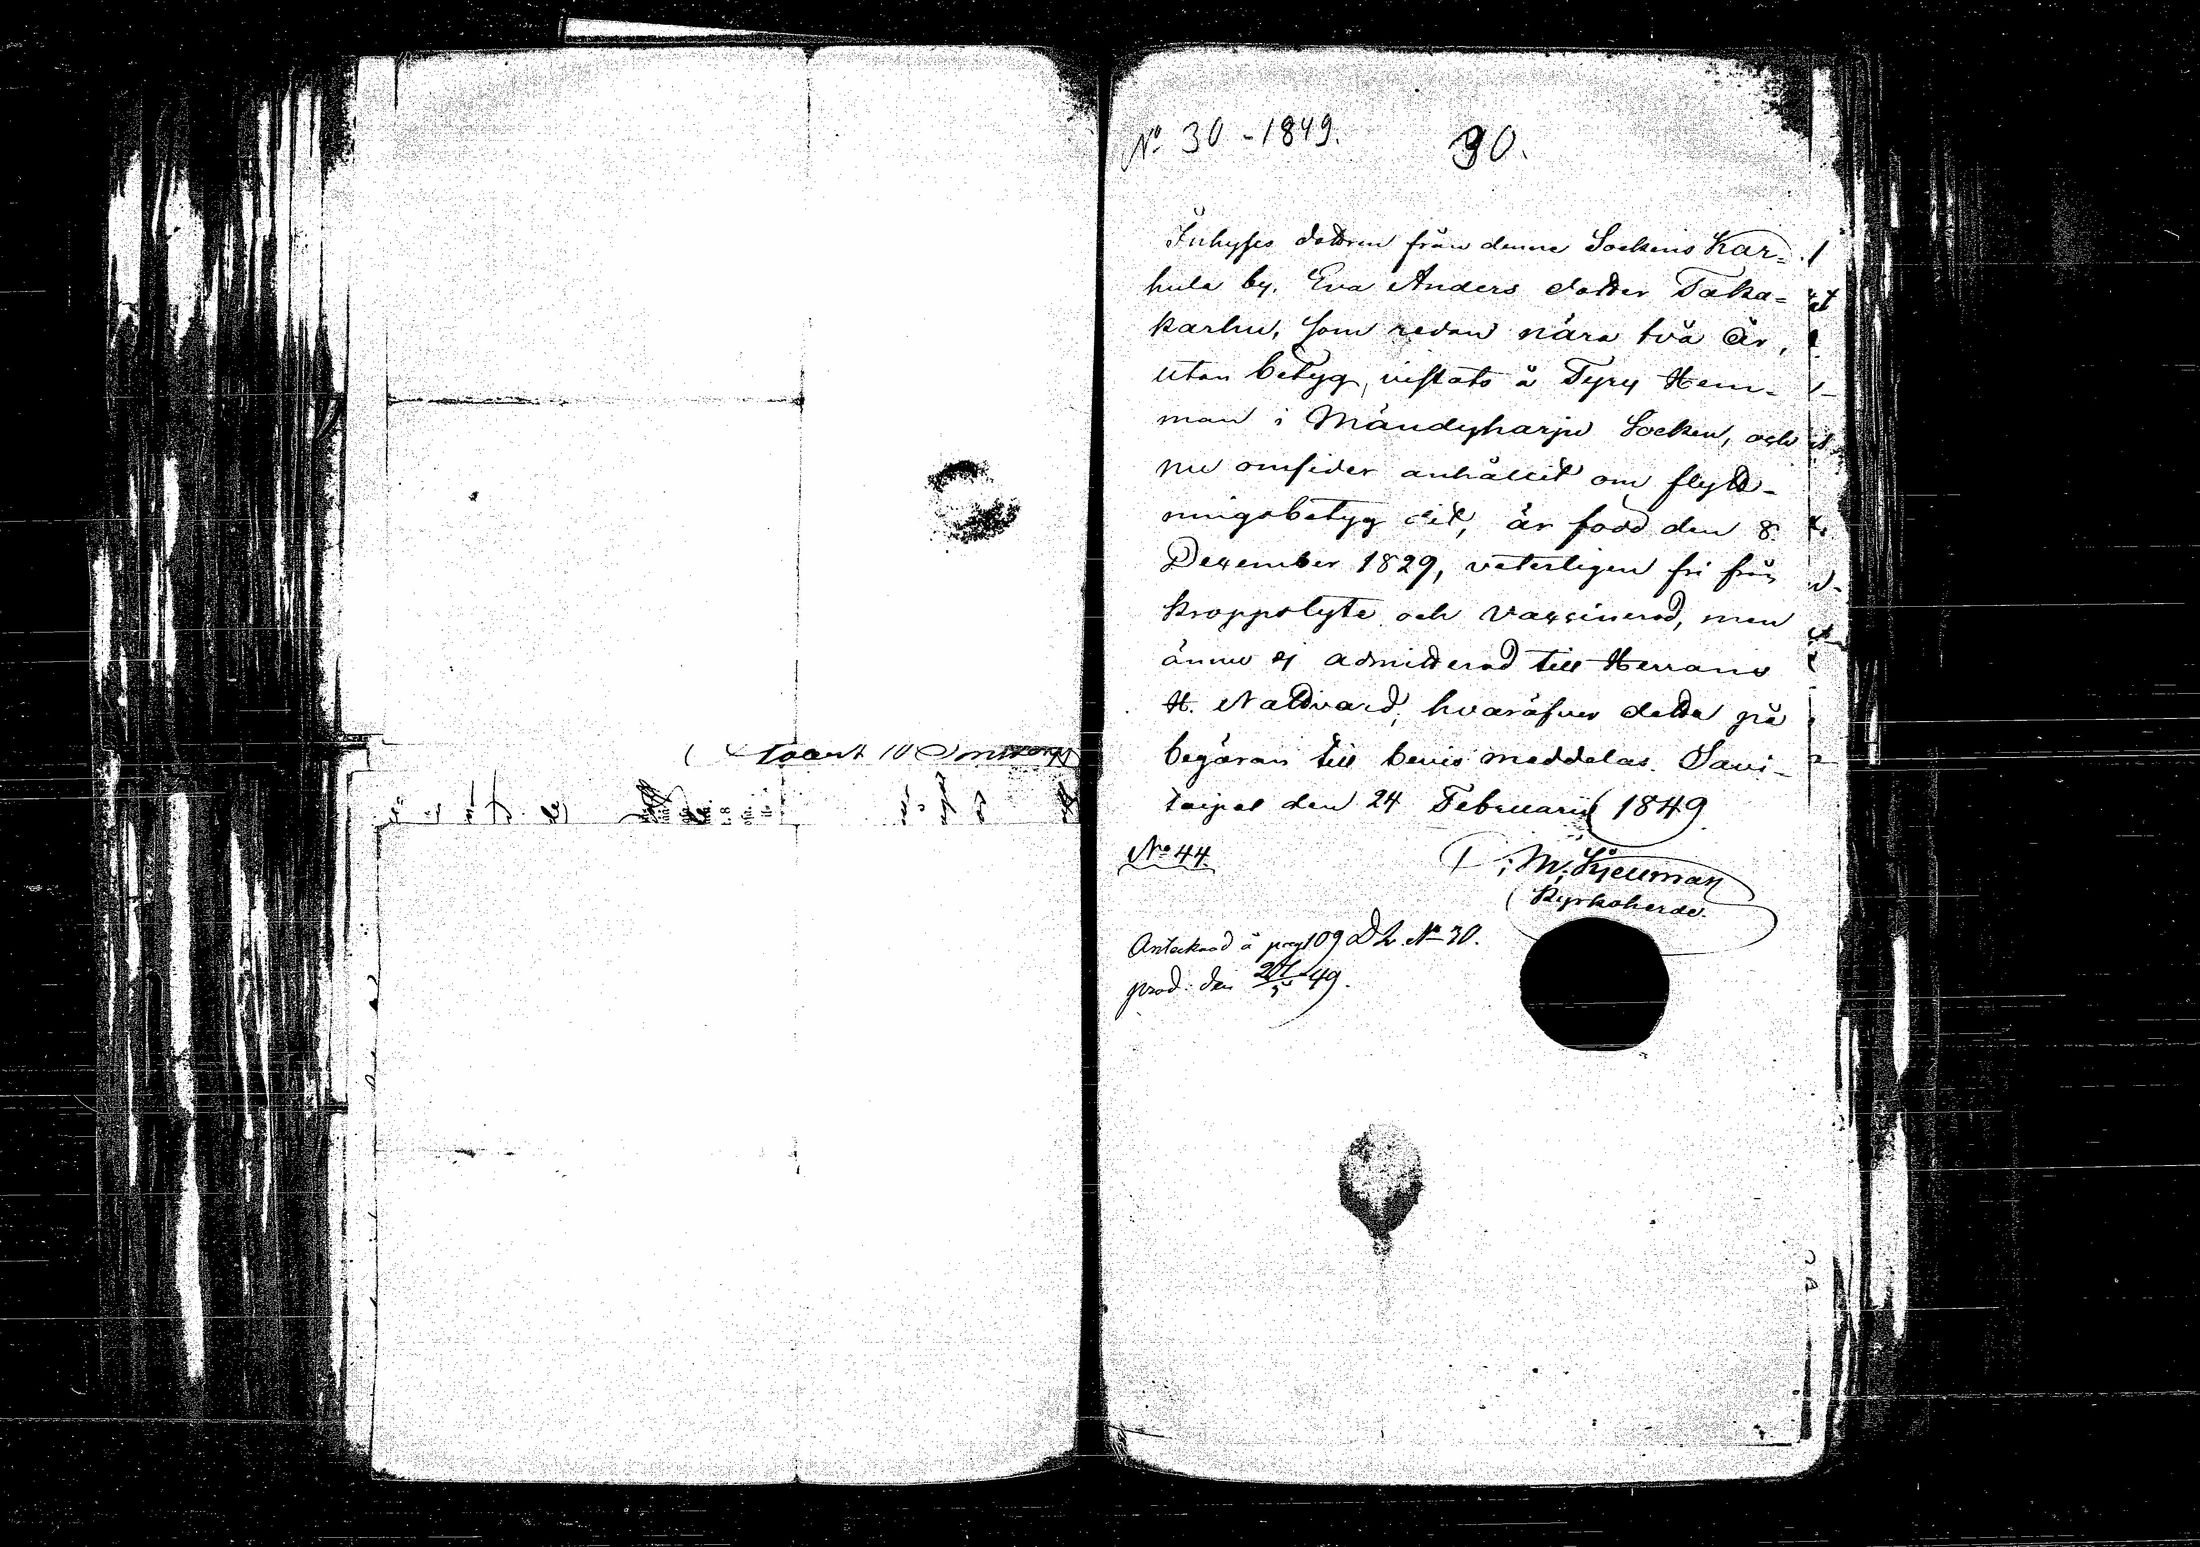 No 30 - 1849.
30.
Inhyses dottren från denne Sockens Kar=
hula by. Eva Anders dotter Taka=
karhu, som redan nära två år,
utan betyg, vistats å Tyry Hem-
man i Mändyharju Socken, och
nu omsider anhållit om flytt-
ningsbetyg dit, är född den 8
Dexember 1829, veterligen fri från
kroppslyte och vaxxinerad, men
ännu ej admitterad till Herrans
H. Nattvard, hvaröfver detta på
begäran till bevis meddelas. Savi-
taipal den 24 Februarii 1849
No 44.
M: Kjellman
Kyrkoherde.
Antecknad å pag 109 D 2. No 30.
prod. den 49.